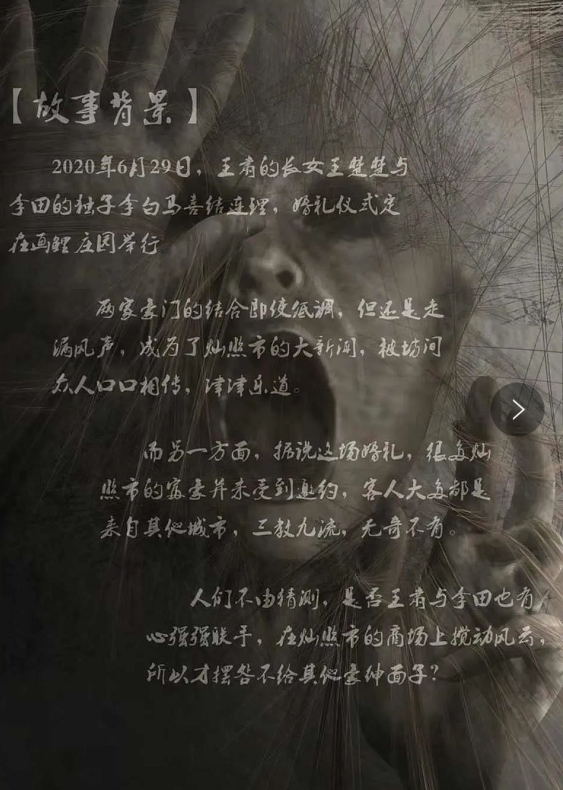 【故事背景】
2020年6月29日，王者的长女王楚楚与
李田的独子李白马喜结连理，婚礼仪式定
在画鲤庄园举行
两家豪门的结合即使低调，但还是走
漏风声，成为了灿照市的大新闻，被坊间
众人口口相传，津津乐道。
而另一方面，据说这场婚礼，很多灿
照市的富豪并未受到邀约，客人大多都是
来自其他城市，三教九流，无奇不有。
人们不由猜测，是否王者与李田也有
心强强联手，在灿照市的商场上搅动风云，
所以才摆答不给其他豪绅面子？